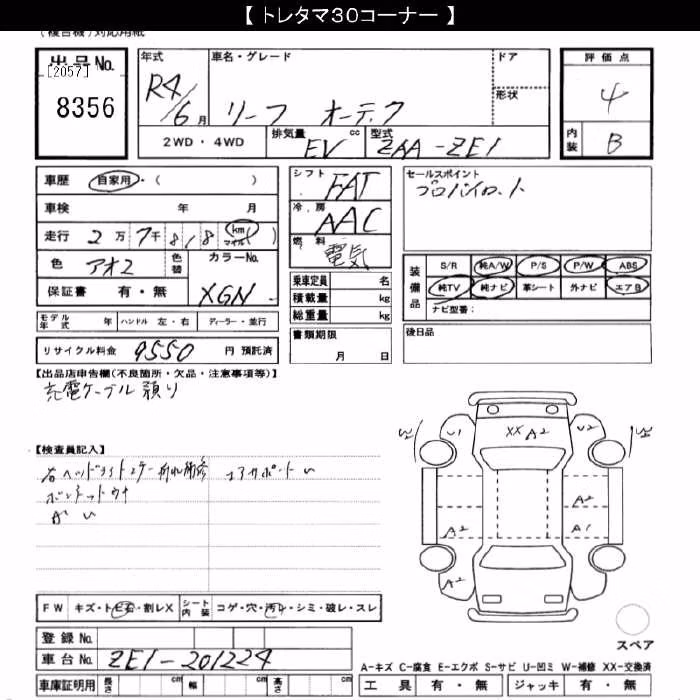 【 トレタマ30コーナー 】
(複合機)対応用紙
出品No.
[2057]
8356
年式 R4/6月
車名・グレード
リーフ オーテック
ドア
形状
2WD・4WD
排気量 EV cc
型式 ZAA-ZE1
評価点
4
内装 B
車歴 自家用・( )
車検 年 月
走行 2万7千818 km マイル( )
色 アオ2 色替
カラーNo. XGN
保証書 有・無
シフト FAT
冷房 AAC
燃料 電気
乗車定員 名
積載量 kg
総重量 kg
書類期限
月 日
セールスポイント
プロパイロット
装備品
S/R 純A/W P/S P/W ABS
純TV 純ナビ 革シート 外ナビ エアB
ナビ型番:
後日品
モデル年式 年 ハンドル 左・右 ディーラー・並行
リサイクル料金 9550 円 預託済
【出品店申告欄(不良箇所・欠品・注意事項等)】
充電ケーブル預り
【検査員記入】
右ヘッドライトステー折れ補修
XX A2
U1
U2
A2
A2
A1
A2
FW キズ・トビ石・割レX
シート内装 コゲ・穴・汚レ・シミ・破レ・スレ
登録No.
車台No. ZE1-201224
車庫証明用 長さ cm 幅 cm 高さ cm
スペア
A-キズ C-腐食 E-エクボ S-サビ U-凹ミ W-補修 XX-交換済
工具 有・無 ジャッキ 有・無